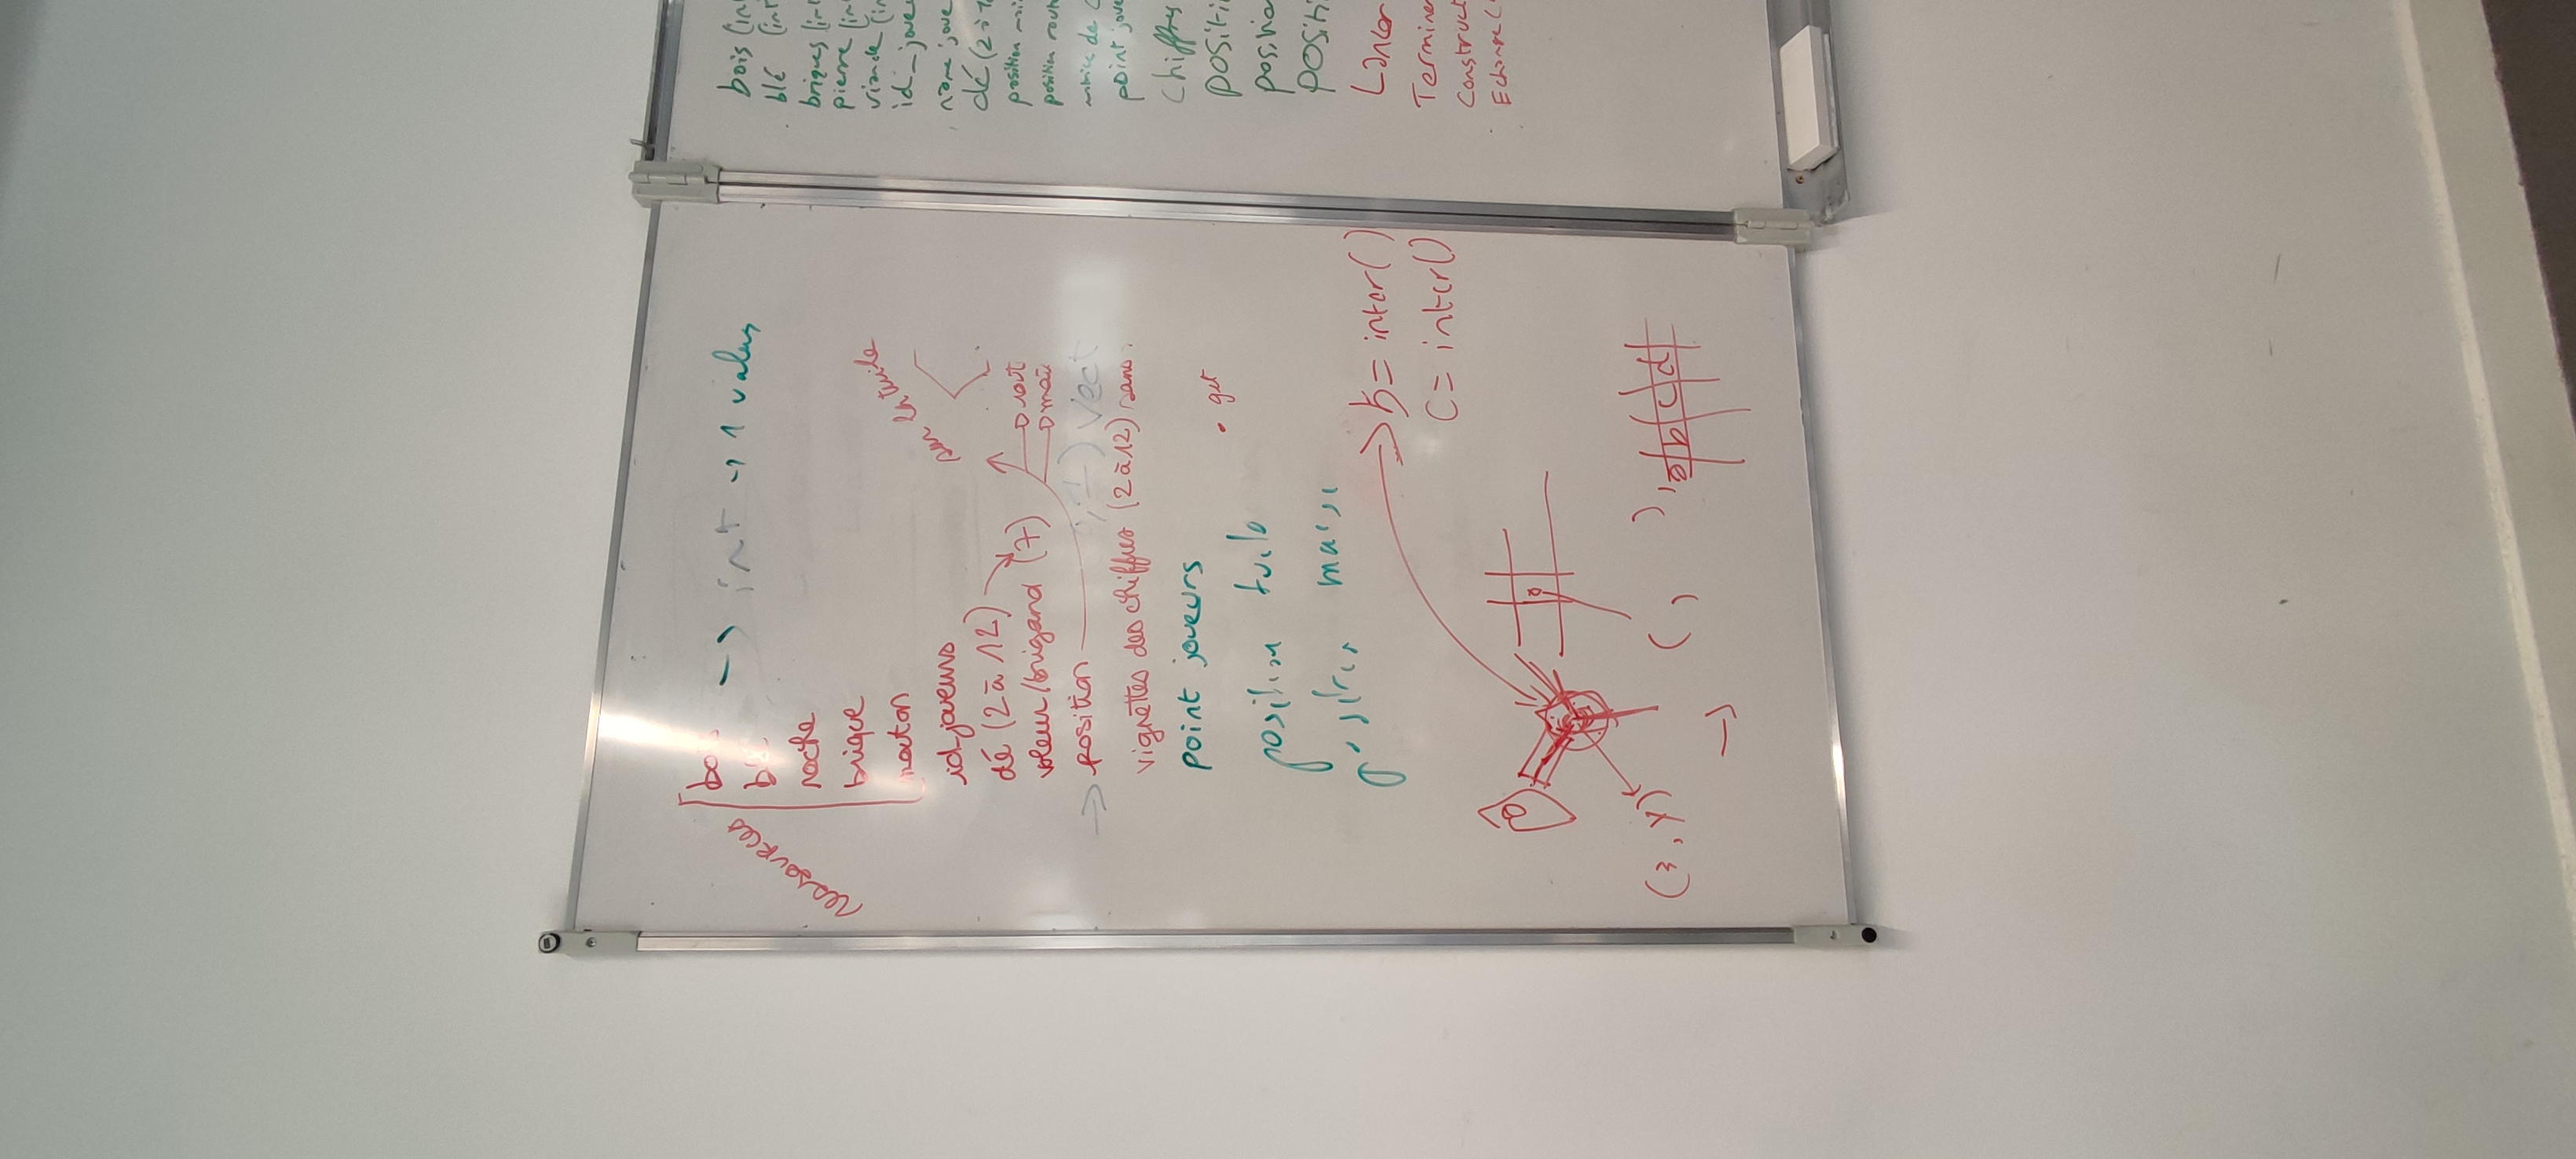 ressources
bois -> int -> 1 values
blé
roche
brique
mouton
id_joueurs
dé (2 à 12)
voleur/brigand (7)
sur la tuile
position
vect
vignettes des chiffres (2 à 12) sans
point joueurs
get
position tuile
b = inter()
c = inter()
a b c d
bois (int
blé (int
briques (in
pierre (in
viande (in
id_joue
name joue
dé (2 à 1
position mai
position route
point joue
chiffres
positi
positio
positi
Lancer
Termine
Construct
Echange (